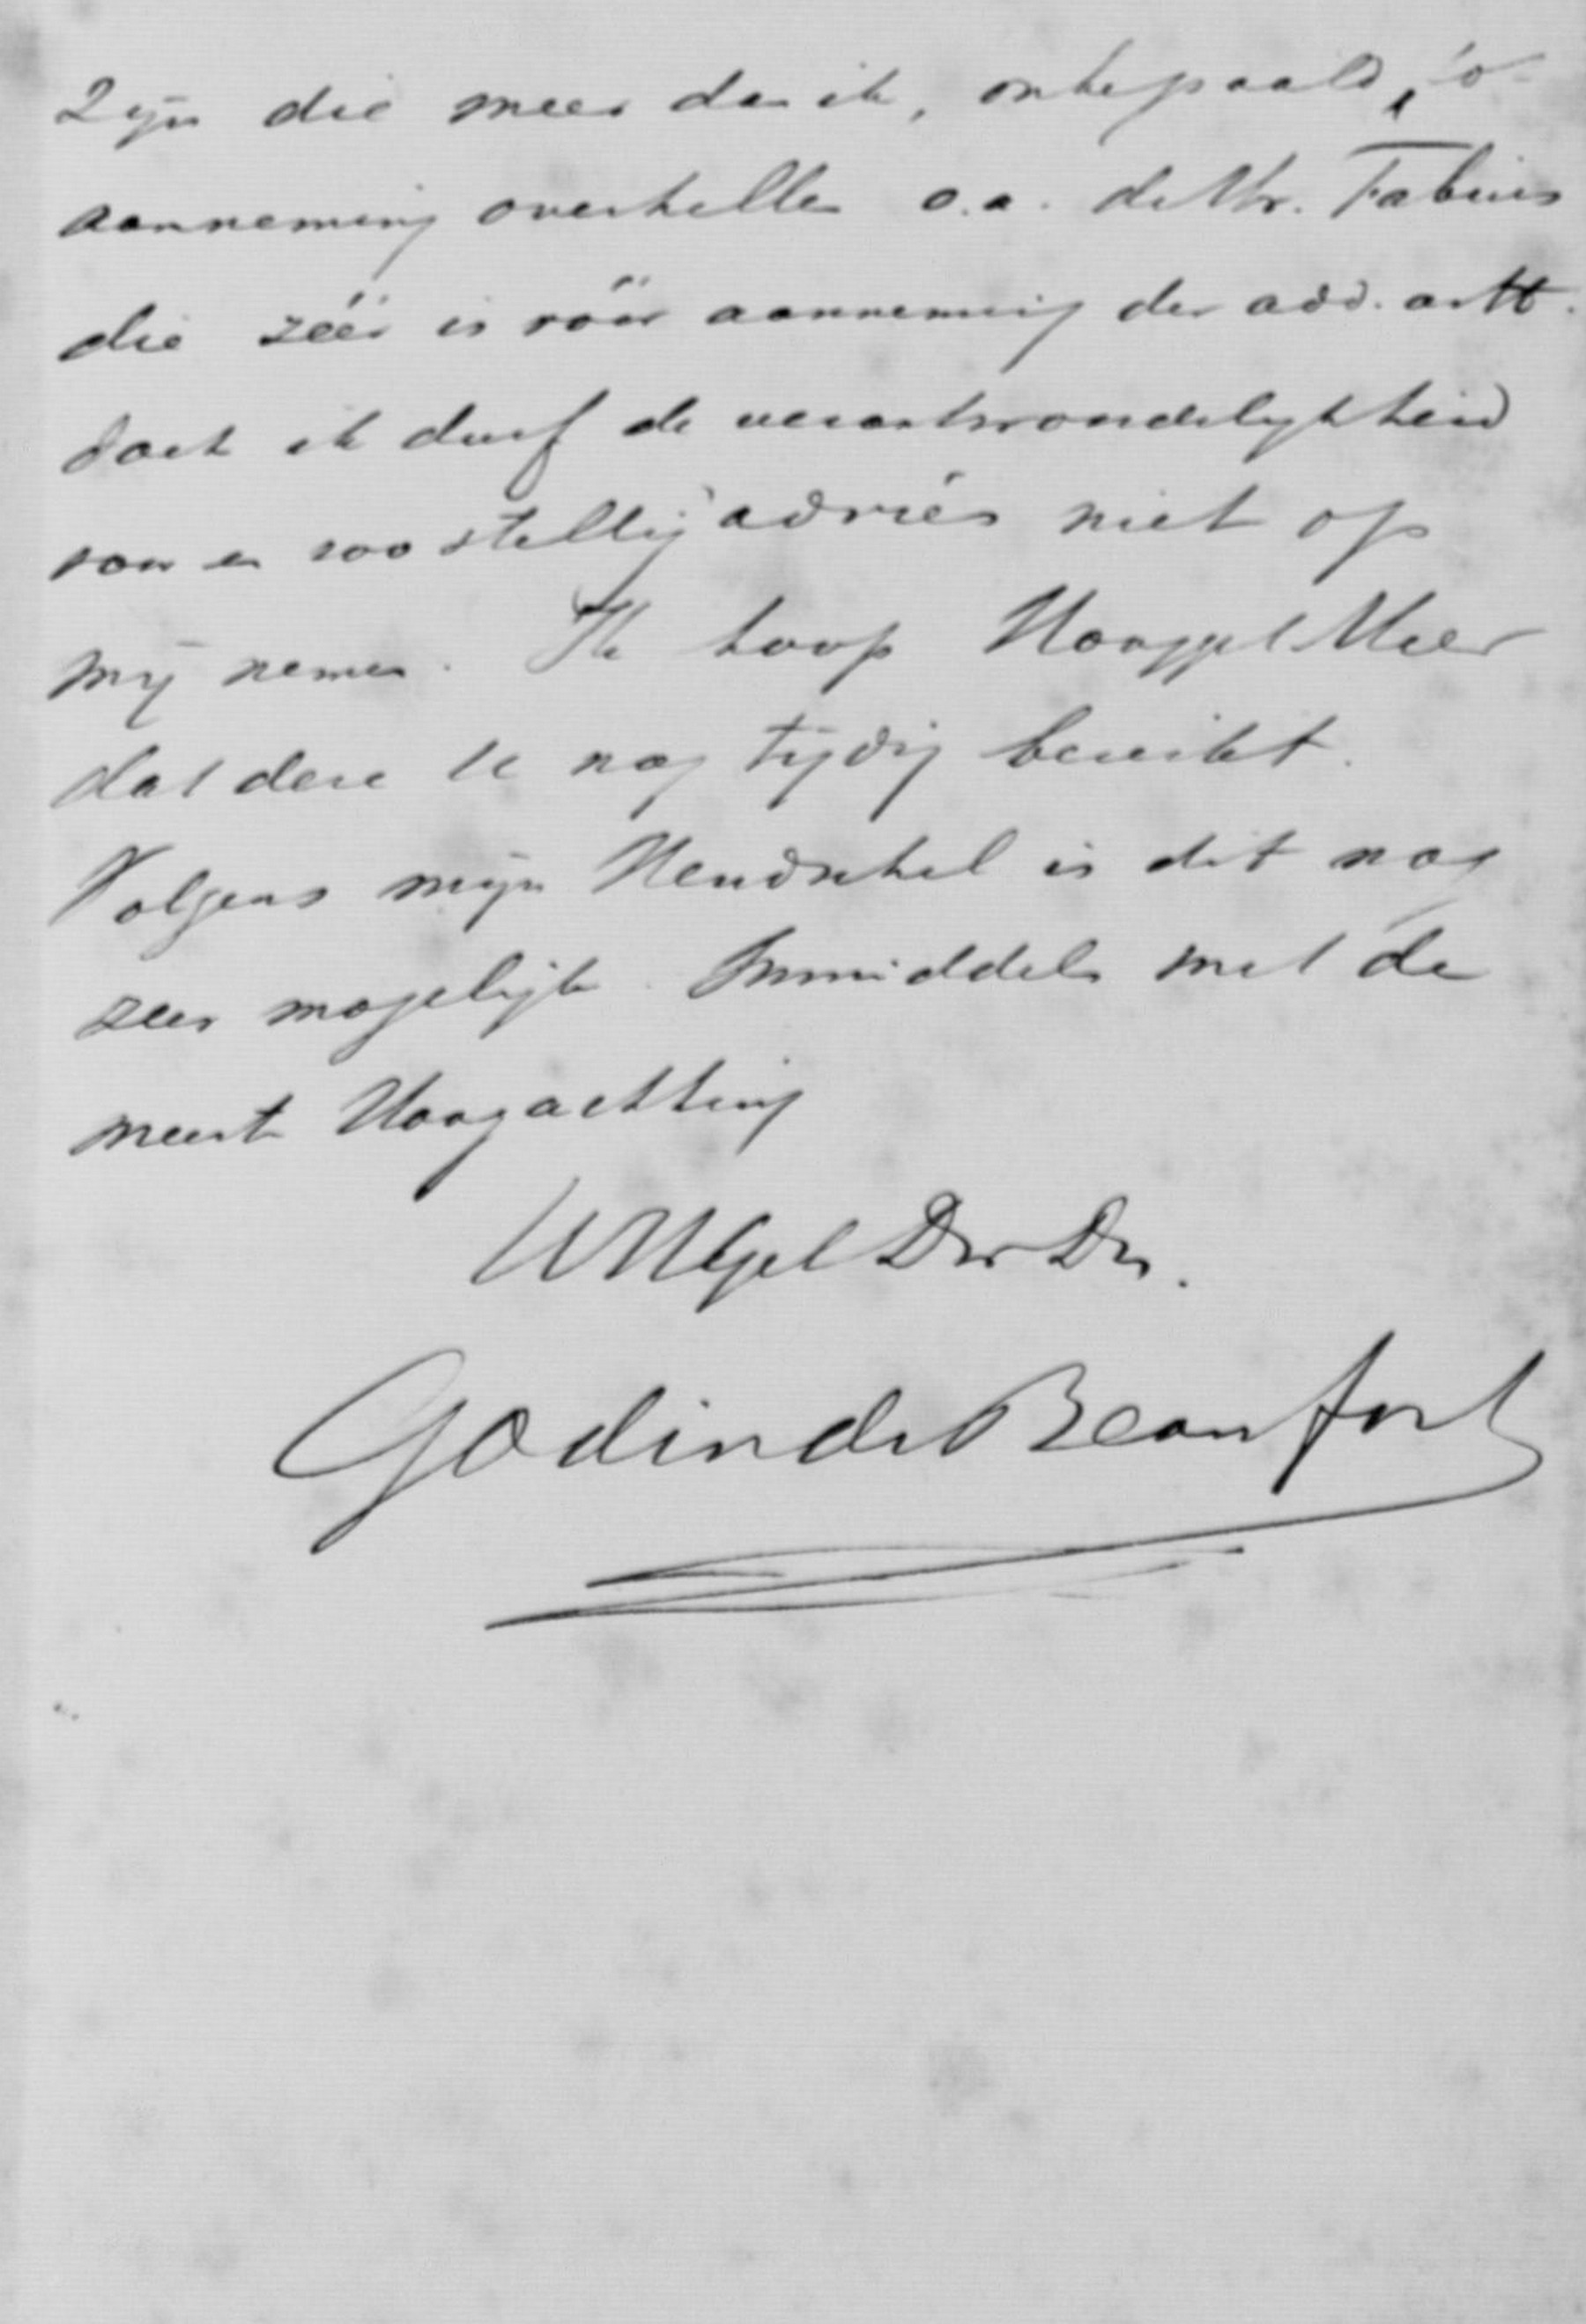 zijn die meer dan ik, onbepaald,
aanneming overhellen o.a. de Hr. Fabius
die zéér is vóór aanneming der add. artt.
doch ik durf de verantwoordelijkheid
van en zoo stellig advies niet op
mij nemen. Ik hoop Hooggel Heer
dat deze U nog tijdig bereikt.
Volgens mijn Hendschel is dit nog
zeer mogelijk. Inmiddels met de
meeste Hoogachting
UHGel Dw Dn.
Godin de Beaufort